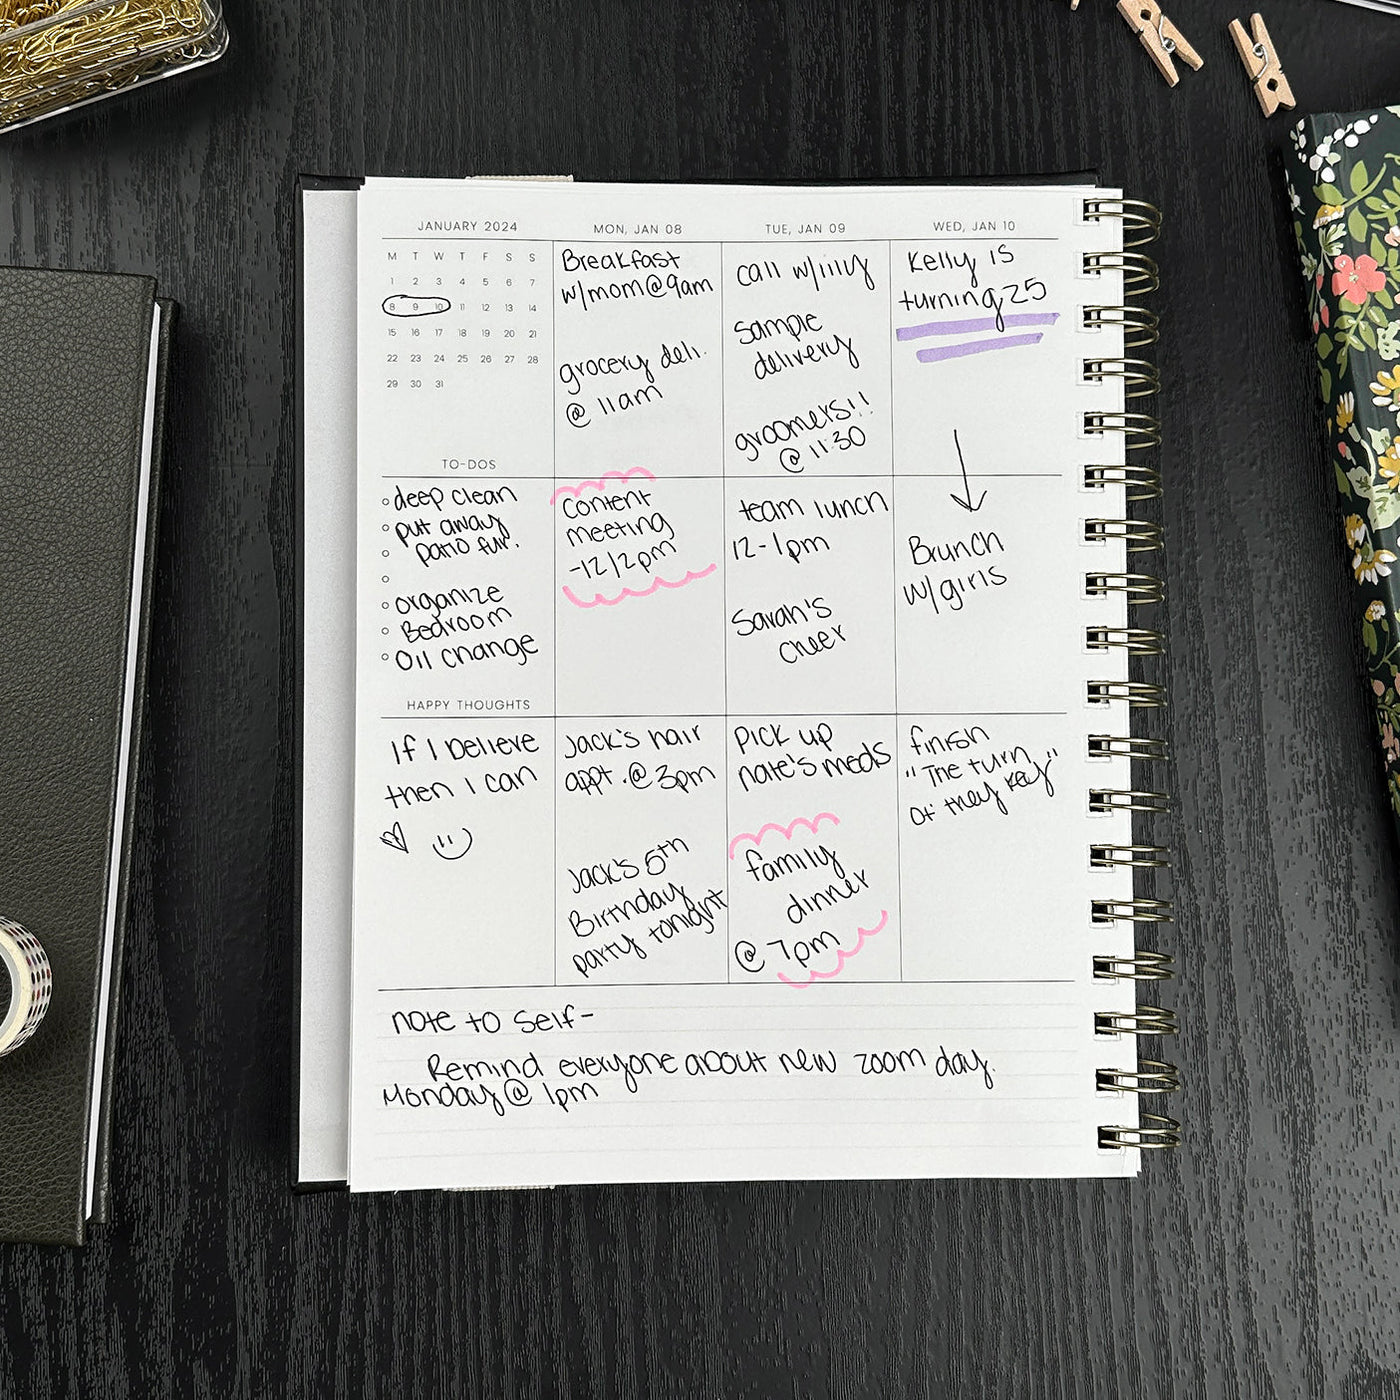 JANUARY 2024
M T W T F S S
1 2 3 4 5 6 7
8 9 10 11 12 13 14
15 16 17 18 19 20 21
22 23 24 25 26 27 28
29 30 31
TO-DOS
deep clean
put away
patio fur.
organize
Bedroom
Oil change
HAPPY THOUGHTS
If I believe
then I can
MON, JAN 08
Breakfast
w/mom@9am
grocery deli.
@ 11am
Content
meeting
-12/2pm
Jack's hair
appt. @ 3pm
Jack's 5th
Birthday
party tonight
TUE, JAN 09
call w/lilly
Sample
delivery
groomers!!
@ 11:30
team lunch
12-1pm
Sarah's
cheer
Pick up
nate's meds
family
dinner
@ 7pm
WED, JAN 10
Kelly is
turning 25
Brunch
w/girls
finish
"The turn
of they Key"
note to self-
Remind everyone about new zoom day.
Monday @ 1pm